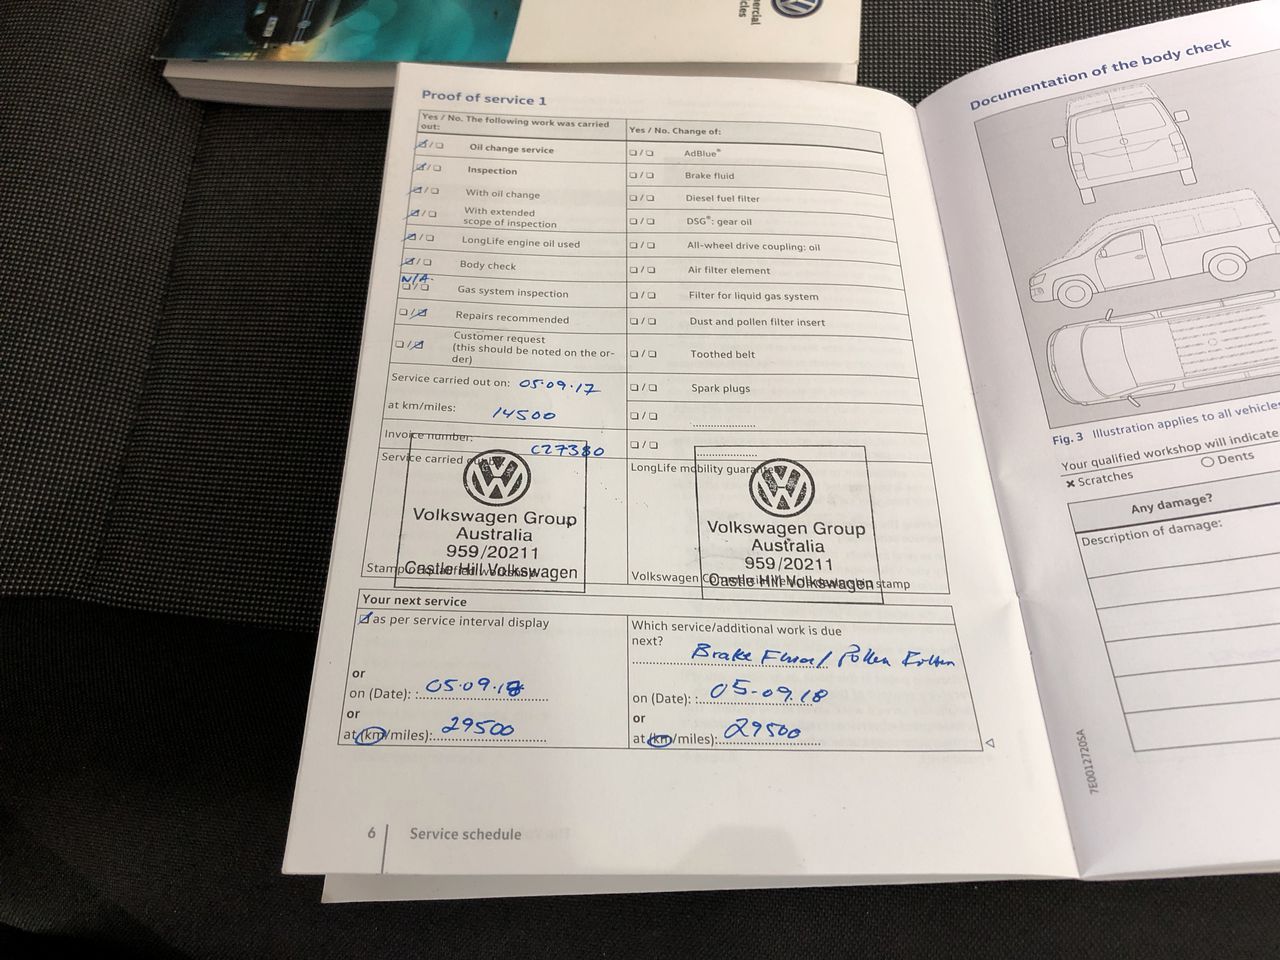 ercial
cles
Proof of service 1
Yes / No. The following work was carried out:
Yes / No. Change of:
Oil change service
Inspection
With oil change
With extended
scope of inspection
LongLife engine oil used
Body check
N/A
Gas system inspection
Repairs recommended
Customer request
(this should be noted on the or-
der)
AdBlue®
Brake fluid
Diesel fuel filter
DSG®: gear oil
All-wheel drive coupling: oil
Air filter element
Filter for liquid gas system
Dust and pollen filter insert
Toothed belt
Spark plugs
Service carried out on: 05.09.17
at km/miles: 14500
Invoice number: C27380
Service carried
LongLife mobility guarantee
Volkswagen Group
Australia
959/20211
Castle Hill Volkswagen
Stamp
Volkswagen Group
Australia
959/20211
Castle Hill Volkswagen
Volkswagen stamp
Your next service
as per service interval display
or
on (Date): : 05.09.18
or
at (km/miles): 29500
Which service/additional work is due
next? Brake Fluid / Pollen Filter
on (Date): : 05-09.18
or
at (km/miles): 29500
6 Service schedule
Documentation of the body check
Fig. 3 Illustration applies to all vehicles
Your qualified workshop will indicate
× Scratches ○ Dents
Any damage?
Description of damage:
7E0012720SA